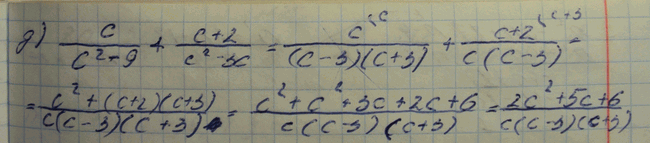 д) c/(c²-9) + (c+2)/(c²-3c) = c^{\c}/((c-3)(c+3)) + (c+2^{\c+3})/(c(c-3)) =
= (c²+(c+2)(c+3))/(c(c-3)(c+3)) = (c²+c²+3c+2c+6)/(c(c-3)(c+3)) = (2c²+5c+6)/(c(c-3)(c+3))